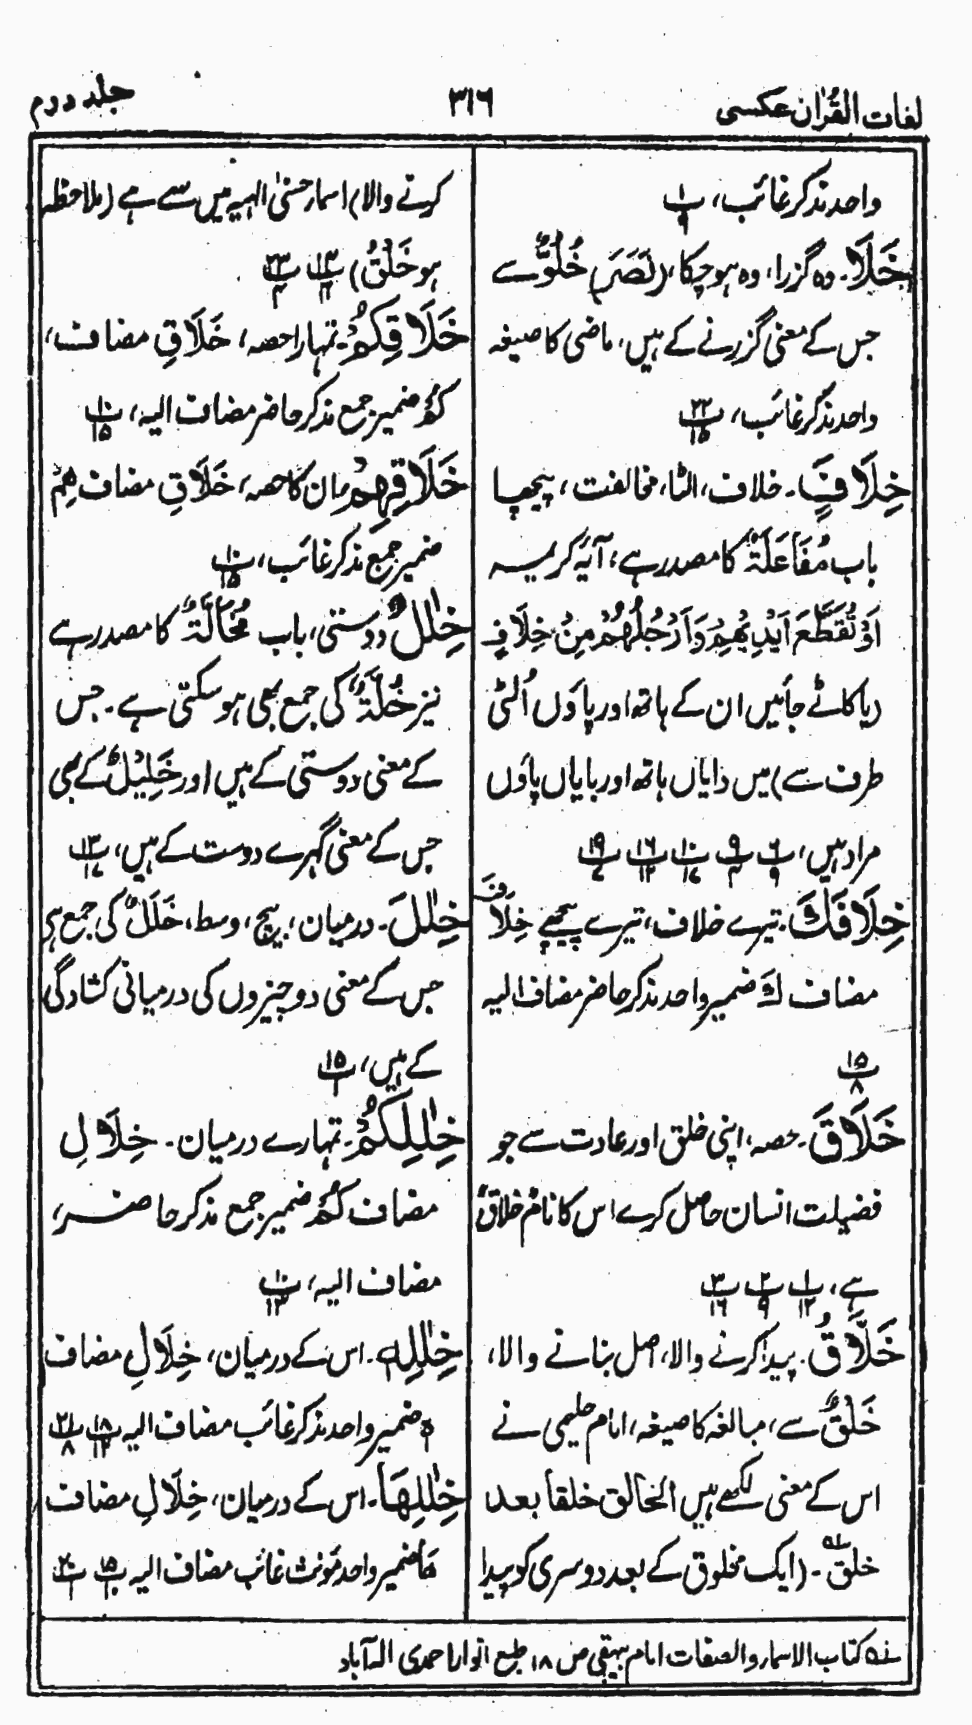 لغات القرآن عکسی
۳۱۶
جلد دوم
واحد مذکر غائب، پ۱/۹
خَلَا۔ وہ گزرا، وہ ہو چکا، (نَصَرَ) خُلُوٌّ سے
جس کے معنی گزرنے کے ہیں، ماضی کا صیغہ
واحد مذکر غائب، پ۲۲/۱۵
خِلَافٍ۔ خلاف، الٹا، مخالفت، پیچھا
باب مُفَاعَلَۃٌ کا مصدر ہے، آیۂ کریمہ
اَوْ تُقَطَّعَ اَیْدِیْھِمْ وَاَرْجُلُھُمْ مِنْ خِلَافٍ
(یا کاٹے جائیں ان کے ہاتھ اور پاؤں اُلٹی
طرف سے) میں دایاں ہاتھ اور بایاں پاؤں
مراد ہیں، پ۶/۹ پ۹/۴ پ۱۰/۱۶ پ۱۶/۱۲ پ۱۹/۷
خِلَافَكَ۔ تیرے خلاف، تیرے پیچھے خِلَافَ
مضاف كَ ضمیر واحد مذکر حاضر مضاف الیہ
پ۱۵/۸
خَلَاقَ۔ حصہ، اپنی خلق اور عادت سے جو
فضیلت انسان حاصل کرے اس کا نام خلاق
ہے، پ۱/۱۲ پ۲/۹ پ۳/۱۶
خَلّٰقُ۔ پیدا کرنے والا، اصل بنانے والا،
خَلْقٌ سے، مبالغہ کا صیغہ، امام حلیمی نے
اس کے معنی لکھے ہیں الخالق خلقا بعد
خلق لہ۔ (ایک مخلوق کے بعد دوسری کو پیدا
کرنے والا) اسمار حسنیٰ الہیہ میں سے ہے (ملاحظہ
ہو خَلْقٌ) پ۱۴/۶ پ۲۳/۴
خَلَاقِكُمْ۔ تمہارا حصہ، خَلَاقِ مضاف،
كُمْ ضمیر جمع مذکر حاضر مضاف الیہ، پ۱۰/۱۵
خَلَاقِهِمْ۔ ان کا حصہ، خَلَاقِ مضاف هِمْ
ضمیر جمع مذکر غائب، پ۱۰/۱۵
خِلٰلٌ۔ دوستی، باب مُخَالَّۃٌ کا مصدر ہے
نیز خُلَّۃٌ کی جمع بھی ہو سکتی ہے۔ جس
کے معنی دوستی کے ہیں اور خَلِیْلٌ کے بھی
جس کے معنی گہرے دوست کے ہیں، پ۱۳/۱۷
خِلٰلَ۔ درمیان، بیچ، وسط، خَلَلٌ کی جمع ہی
جس کے معنی دو چیزوں کی درمیانی کشادگی
کے ہیں، پ۱۵/۱
خِلٰلِكُمْ۔ تمہارے درمیان۔ خِلَالِ
مضاف كُمْ ضمیر جمع مذکر حاضر،
مضاف الیہ، پ۱۰/۱۳
خِلٰلِهٖ۔ اس کے درمیان، خِلَالِ مضاف
ہٖ ضمیر واحد مذکر غائب مضاف الیہ پ۱۸/۱۲ پ۲۱/۸
خِلٰلِهَا۔ اس کے درمیان، خِلَالِ مضاف
ھَا ضمیر واحد مؤنث غائب مضاف الیہ پ۱۵/۱ پ۲۰/۱
لہ کتاب الاسمار والصفات امام بیہقی ص ۱۸ طبع انوار احمدی الہ آباد